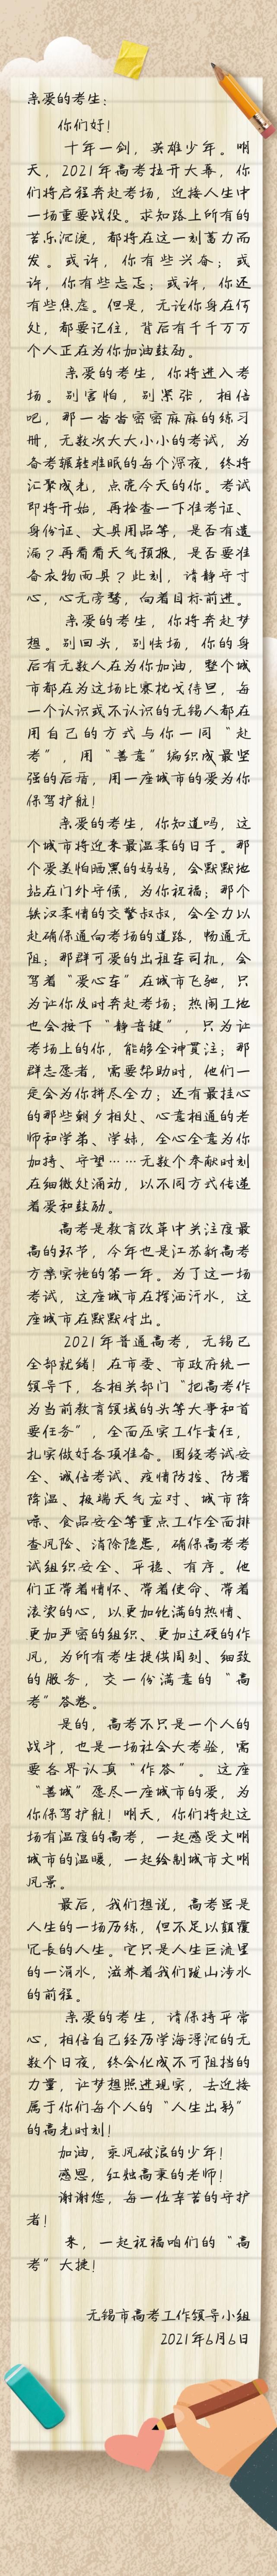 亲爱的考生：
你们好！
十年一剑，英雄少年。明
天，2021年高考拉开大幕，你
们将启程奔赴考场，迎接人生中
一场重要战役。求知路上所有的
苦乐沉淀，都将在这一刻蓄力而
发。或许，你有些兴奋；或
许，你有些忐忑；或许，你还
有些焦虑。但是，无论你身在何
处，都要记住，背后有千千万万
个人正在为你加油鼓励。
亲爱的考生，你将进入考
场。别害怕，别紧张，相信
吧，那一沓沓密密麻麻的练习
册，无数次大大小小的考试，为
备考辗转难眠的每个深夜，终将
汇聚成光，点亮今天的你。考试
即将开始，再检查一下准考证、
身份证、文具用品等，是否有遗
漏？再看看天气预报，是否要准
备衣物雨具？此刻，请静守寸
心，心无旁骛，向着目标前进。
亲爱的考生，你将奔赴梦
想。别回头，别怯场，你的身
后有无数人在为你加油，整个城
市都在为这场比赛枕戈待旦，每
一个认识或不认识的无锡人都在
用自己的方式与你一同“赴
考”，用“善意”编织成最坚
强的后盾，用一座城市的爱为你
保驾护航！
亲爱的考生，你知道吗，这
个城市将迎来最温柔的日子。那
个爱美怕晒黑的妈妈，会默默地
站在门外守候，为你祝福；那个
铁汉柔情的交警叔叔，会全力以
赴确保通向考场的道路，畅通无
阻；那群可爱的出租车司机，会
驾着“爱心车”在城市飞驰，只
为让你及时奔赴考场；热闹工地
也会按下“静音键”，只为让
考场上的你，能够全神贯注；那
群志愿者，需要帮助时，他们一
定会为你拼尽全力；还有最挂心
的那些朝夕相处、心意相通的老
师和学弟、学妹，全心全意为你
加持、守望……无数个奉献时刻
在细微处涌动，以不同方式传递
着爱和鼓励。
高考是教育改革中关注度最
高的环节，今年也是江苏新高考
方案实施的第一年。为了这一场
考试，这座城市在挥洒汗水，这
座城市在默默付出。
2021年普通高考，无锡已
全部就绪！在市委、市政府统一
领导下，各相关部门“把高考作
为当前教育领域的头等大事和首
要任务”，全面压实工作责任，
扎实做好各项准备。围绕考试安
全、诚信考试、疫情防控、防暑
降温、极端天气应对、城市降
噪、食品安全等重点工作全面排
查风险、消除隐患，确保高考考
试组织安全、平稳、有序。他
们正带着情怀、带着使命、带着
滚烫的心，以更加饱满的热情、
更加严密的组织、更加过硬的作
风，为所有考生提供周到、细致
的服务，交一份满意的“高
考”答卷。
是的，高考不只是一个人的
战斗，也是一场社会大考验，需
要各界认真“作答”。这座
“善城”愿尽一座城市的爱，为
你保驾护航！明天，你们将赴这
场有温度的高考，一起感受文明
城市的温暖，一起绘制城市文明
风景。
最后，我们想说，高考虽是
人生的一场历练，但不足以颠覆
冗长的人生。它只是人生巨流里
的一涓水，滋养着我们跋山涉水
的前程。
亲爱的考生，请保持平常
心，相信自己经历学海浮沉的无
数个日夜，终会化成不可阻挡的
力量，让梦想照进现实，去迎接
属于你们每个人的“人生出彩”
的高光时刻！
加油，乘风破浪的少年！
感恩，红烛高秉的老师！
谢谢您，每一位辛苦的守护
者！
来，一起祝福咱们的“高
考”大捷！
无锡市高考工作领导小组
2021年6月6日